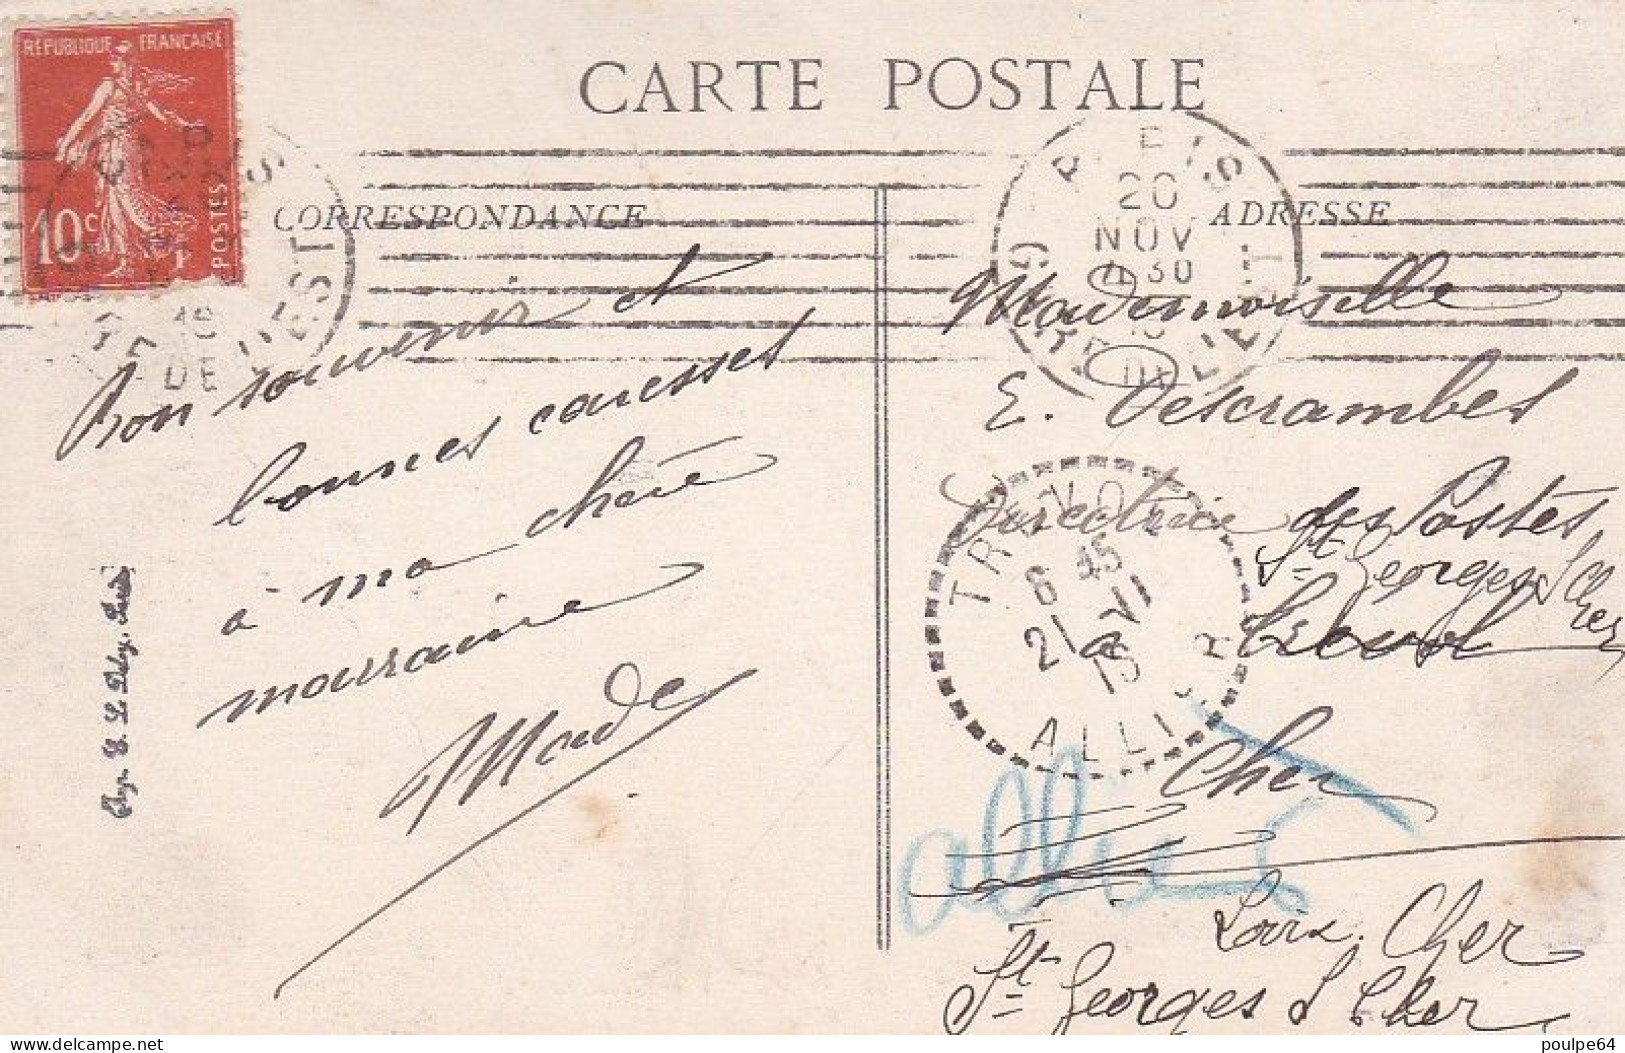 CARTE POSTALE
RÉPUBLIQUE FRANÇAISE
10c
POSTES
CORRESPONDANCE
Bon souvenir et
bonnes caresses
à ma chère
marraine
Maude
ADRESSE
20
NOV
4 30
Mademoiselle
E. Descrambes
Directrice des Postes
St Georges S Cher
a Trevol
TREVOL
6 45
21
ALLIER
Cher
allier
Loir. Cher
St Georges S Cher
delcampe.net
poulpe64